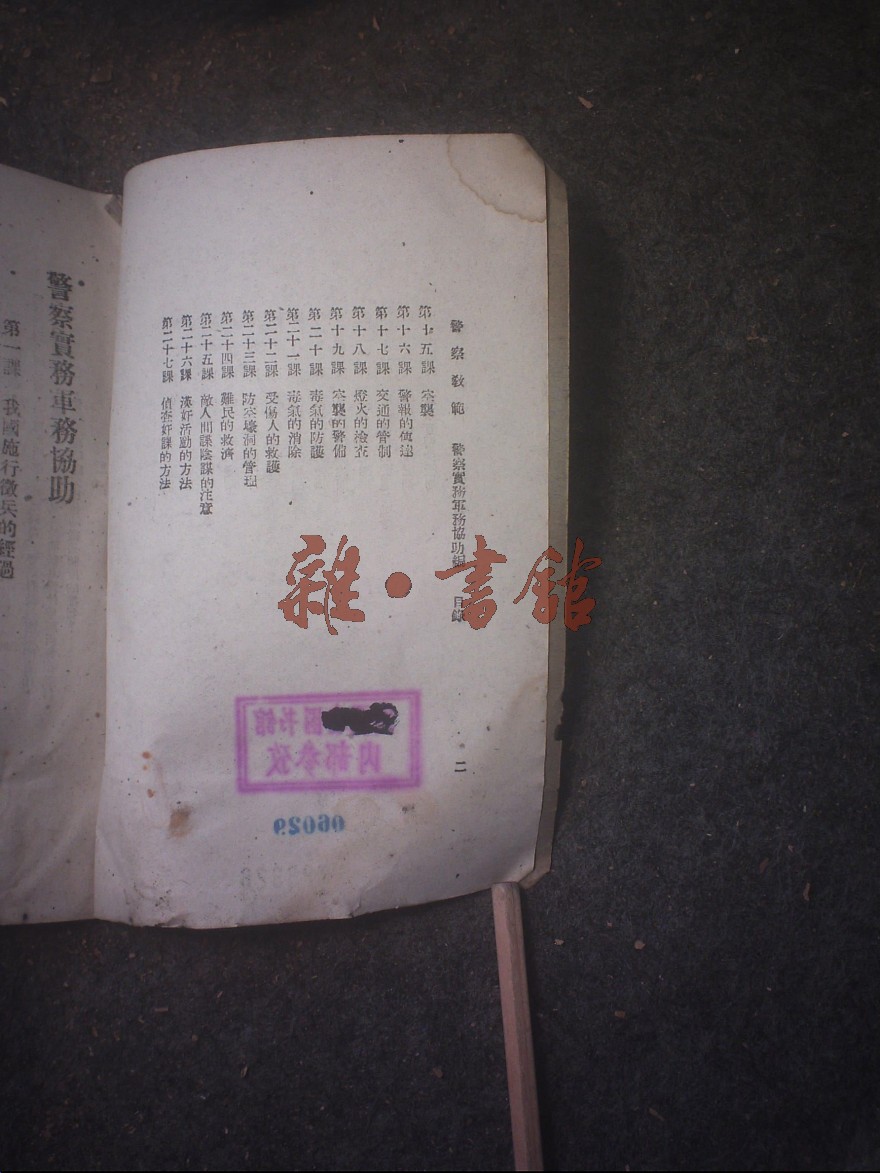 警察教範　警察實務軍務協助編　目錄　二
第十五課　空襲
第十六課　警報的傳達
第十七課　交通的管制
第十八課　燈火的檢查
第十九課　空襲的警備
第二十課　毒氣的防護
第二十一課　毒氣的消除
第二十二課　受傷人的救護
第二十三課　防空壕洞的管理
第二十四課　難民的救濟
第二十五課　敵人間諜陰謀的注意
第二十六課　漢奸活動的方法
第二十七課　偵查奸諜的方法
警察實務軍務協助
第一課　我國施行徵兵的經過
雜·書館
书馆
内部参攷
06029